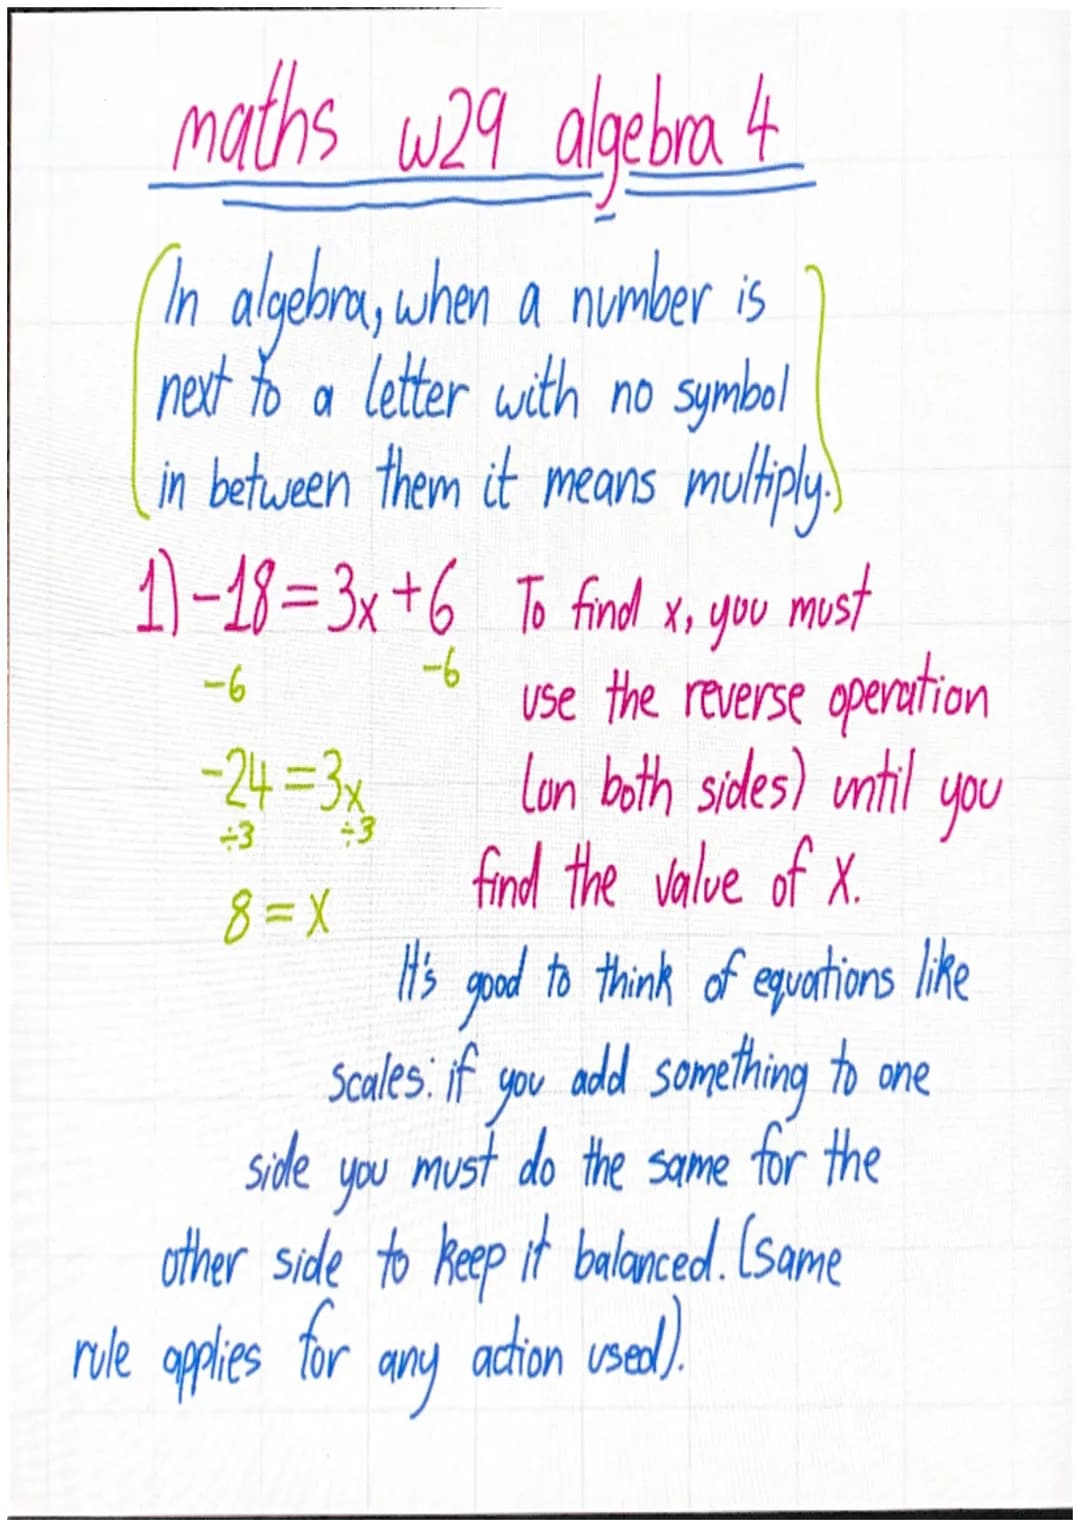 maths w29 algebra 4
(In algebra, when a number is
next to a letter with no symbol
in between them it means multiply.)
1) -18 = 3x + 6
-6 -6
-24 = 3x
÷3 ÷3
8 = x
To find x, you must
use the reverse operation
(on both sides) until you
find the value of x.
It's good to think of equations like
scales: if you add something to one
side you must do the same for the
other side to keep it balanced. (same
rule applies for any action used).